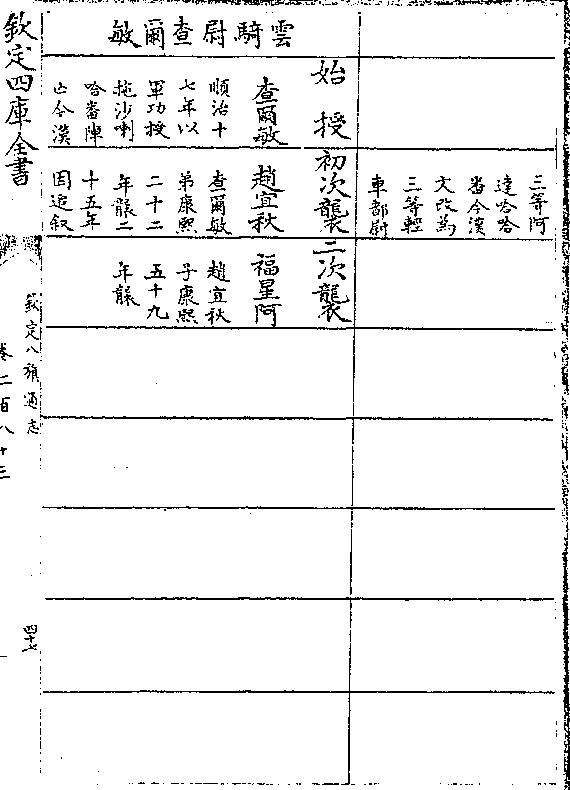 三等阿
達哈哈
畨今漢
文改為
三等輕
車都尉
雲騎尉查爾敏
始授
查爾敏
順治十
七年以
軍功授
拖沙喇
哈畨陣
亡今漢
初次襲
趙宜秋
查爾敏
弟康熙
二十二
年襲二
十五年
因追叙
二次襲
福星阿
趙宜秋
子康熙
五十九
年襲
欽定四庫全書
欽定八旗通志
卷二百八十三
四十七